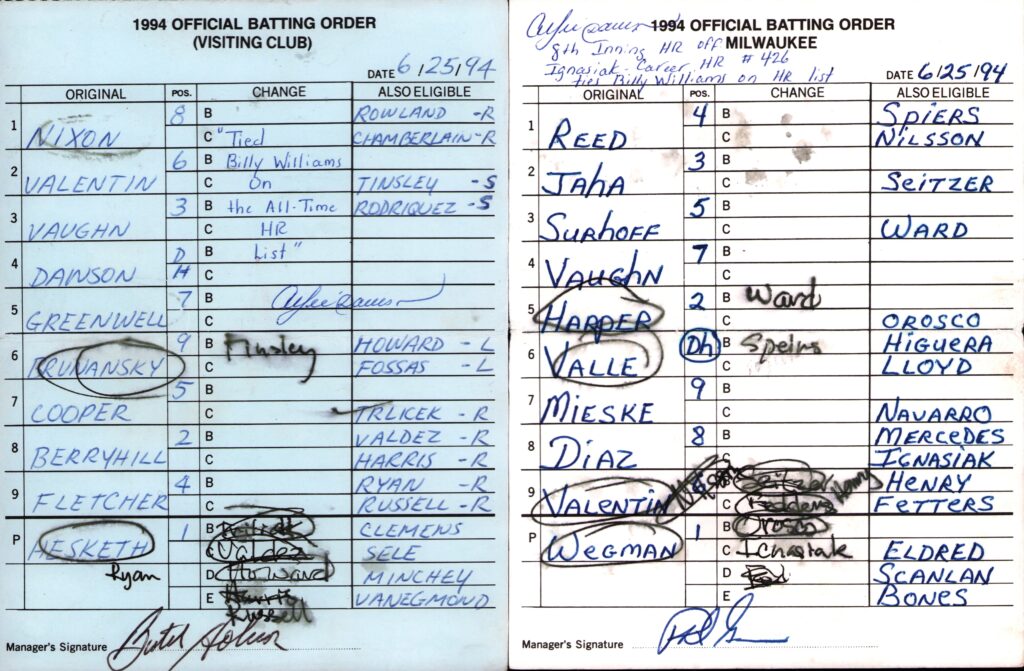 1994 OFFICIAL BATTING ORDER
(VISITING CLUB)
DATE 6/25/94
ORIGINAL POS. CHANGE ALSO ELIGIBLE
1 NIXON 8 B ROWLAND -R
C "Tied CHAMBERLAIN-R
2 VALENTIN 6 B Billy Williams
C On TINSLEY -S
3 VAUGHN 3 B the All-Time RODRIQUEZ -S
C HR
4 DAWSON DH B List"
C
5 GREENWELL 7 B
C
6 BRUNANSKY 9 B Tinsley HOWARD -L
C FOSSAS -L
7 COOPER 5 B
C TRLICEK -R
8 BERRYHILL 2 B VALDEZ -R
C HARRIS -R
9 FLETCHER 4 B RYAN -R
C RUSSELL -R
P HESKETH 1 B CLEMENS
C Valdez SELE
Ryan D Howard MINCHEY
E Harris VANEGMOND
Russell
Manager's Signature
1994 OFFICIAL BATTING ORDER
MILWAUKEE
8th Inning HR off
Ignasiak-Career HR #426
ties Billy Williams on HR list
DATE 6/25/94
ORIGINAL POS. CHANGE ALSO ELIGIBLE
1 REED 4 B SPIERS
C NILSSON
2 JAHA 3 B
C SEITZER
3 SURHOFF 5 B
C WARD
4 VAUGHN 7 B
C
5 HARPER 2 B Ward
C OROSCO
6 VALLE Dh B Speirs HIGUERA
C LLOYD
7 MIESKE 9 B
C NAVARRO
8 DIAZ 8 B MERCEDES
C IGNASIAK
9 VALENTIN 6 B Seitzer HENRY
C Fetters Henry FETTERS
P WEGMAN 1 B Orosco
C Ignasiak ELDRED
D SCANLAN
E BONES
Manager's Signature